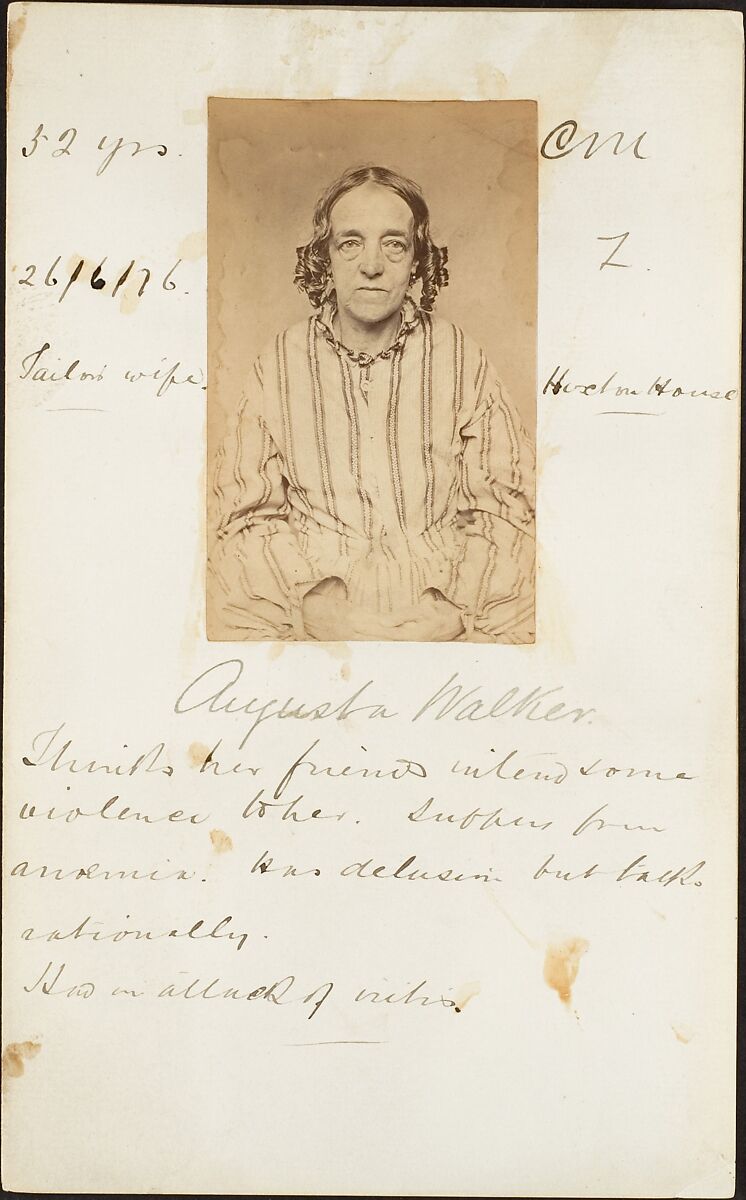 52 yrs.
CM
26/6/76.
7.
Tailors wife.
Hoxton House
Augusta Walker.
Thinks her friends intend some
violence to her. Suffers from
anæmia. Has delusion but talks
rationally.
Had an attack of iritis.